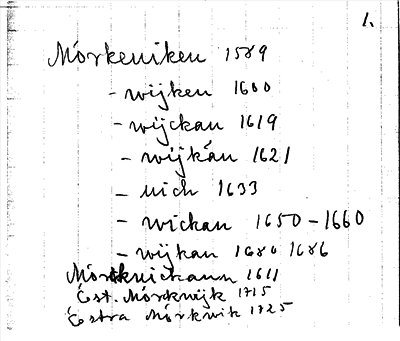 1.
Mórkeniken 1589
- wijken 1600
- wijckan 1619
- wijkan 1621
- nich 1633
- wickan 1650-1660
- wijkan 1680 1686
Mórknickann 1611
Est. Mórkwijk 1715
Estra Mórkwik 1725